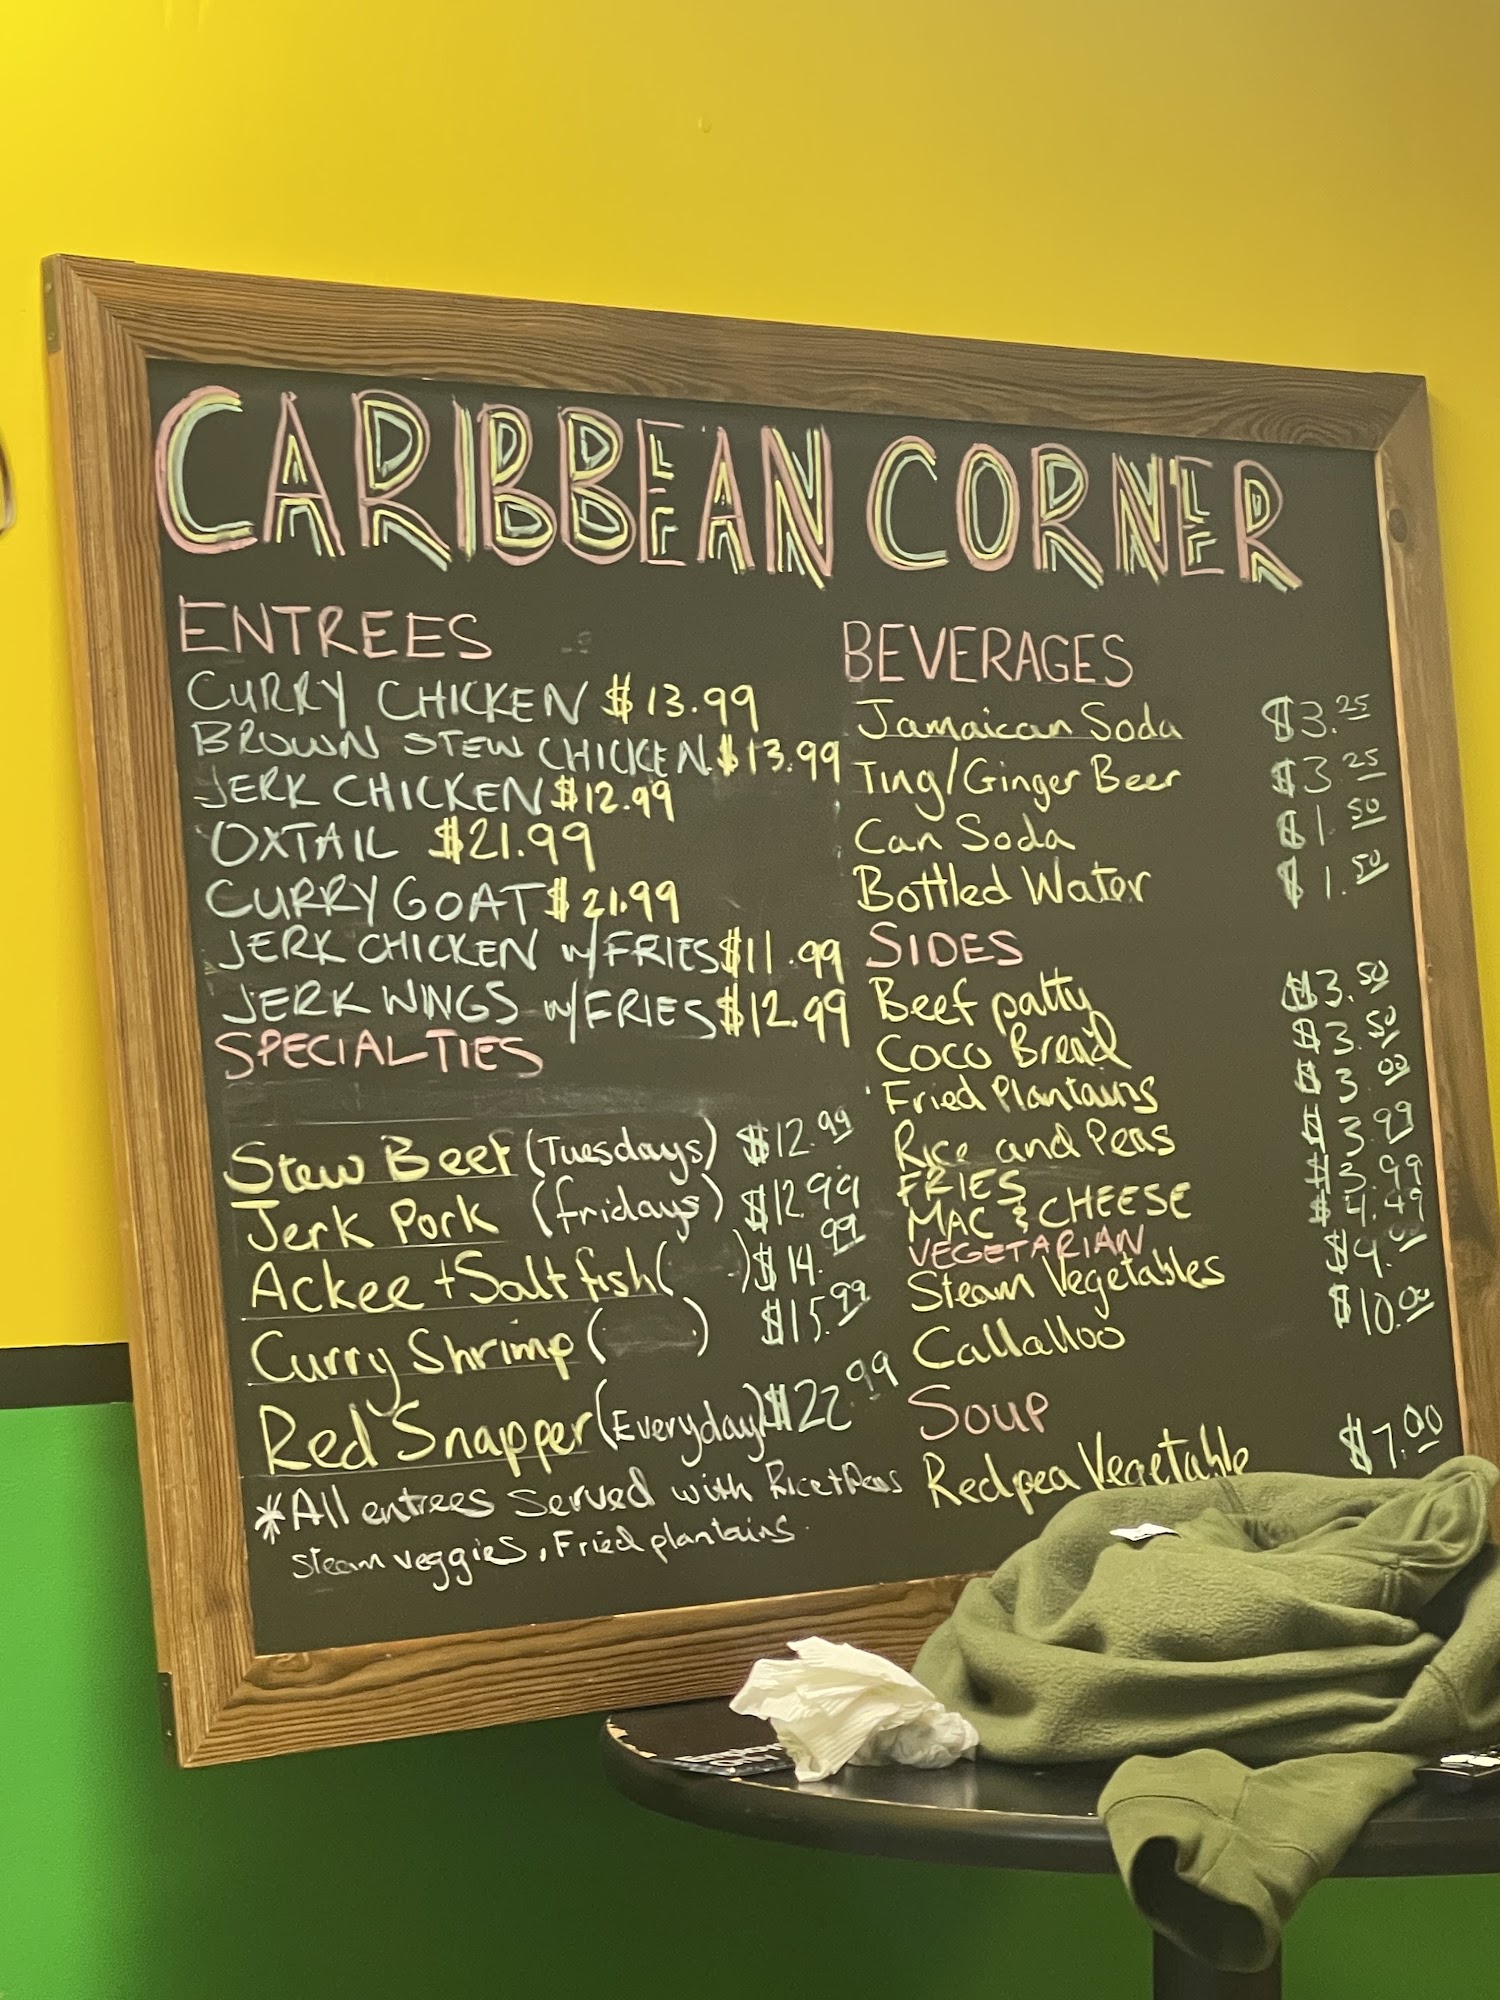 CARIBBEAN CORNER
ENTREES
CURRY CHICKEN $13.99
BROWN STEW CHICKEN $13.99
JERK CHICKEN $12.99
OXTAIL $21.99
CURRY GOAT $21.99
JERK CHICKEN w/FRIES $11.99
JERK WINGS w/FRIES $12.99
SPECIALTIES
Stew Beef (Tuesdays) $12.99
Jerk Pork (fridays) $12.99
Ackee + Saltfish ( ) $14.99
Curry Shrimp ( ) $15.99
Red Snapper (Everyday) $22.99
*All entrees served with Rice + Peas
steam veggies, Fried plantains.
BEVERAGES
Jamaican Soda $3.25
Ting/Ginger Beer $3.25
Can Soda $1.50
Bottled Water $1.50
SIDES
Beef patty $3.50
Coco Bread $3.50
Fried Plantains $3.00
Rice and Peas $3.99
FRIES $3.99
MAC & CHEESE $4.49
VEGETARIAN
Steam Vegetables $9.00
Callalloo $10.00
Soup
Redpea Vegetable $7.00